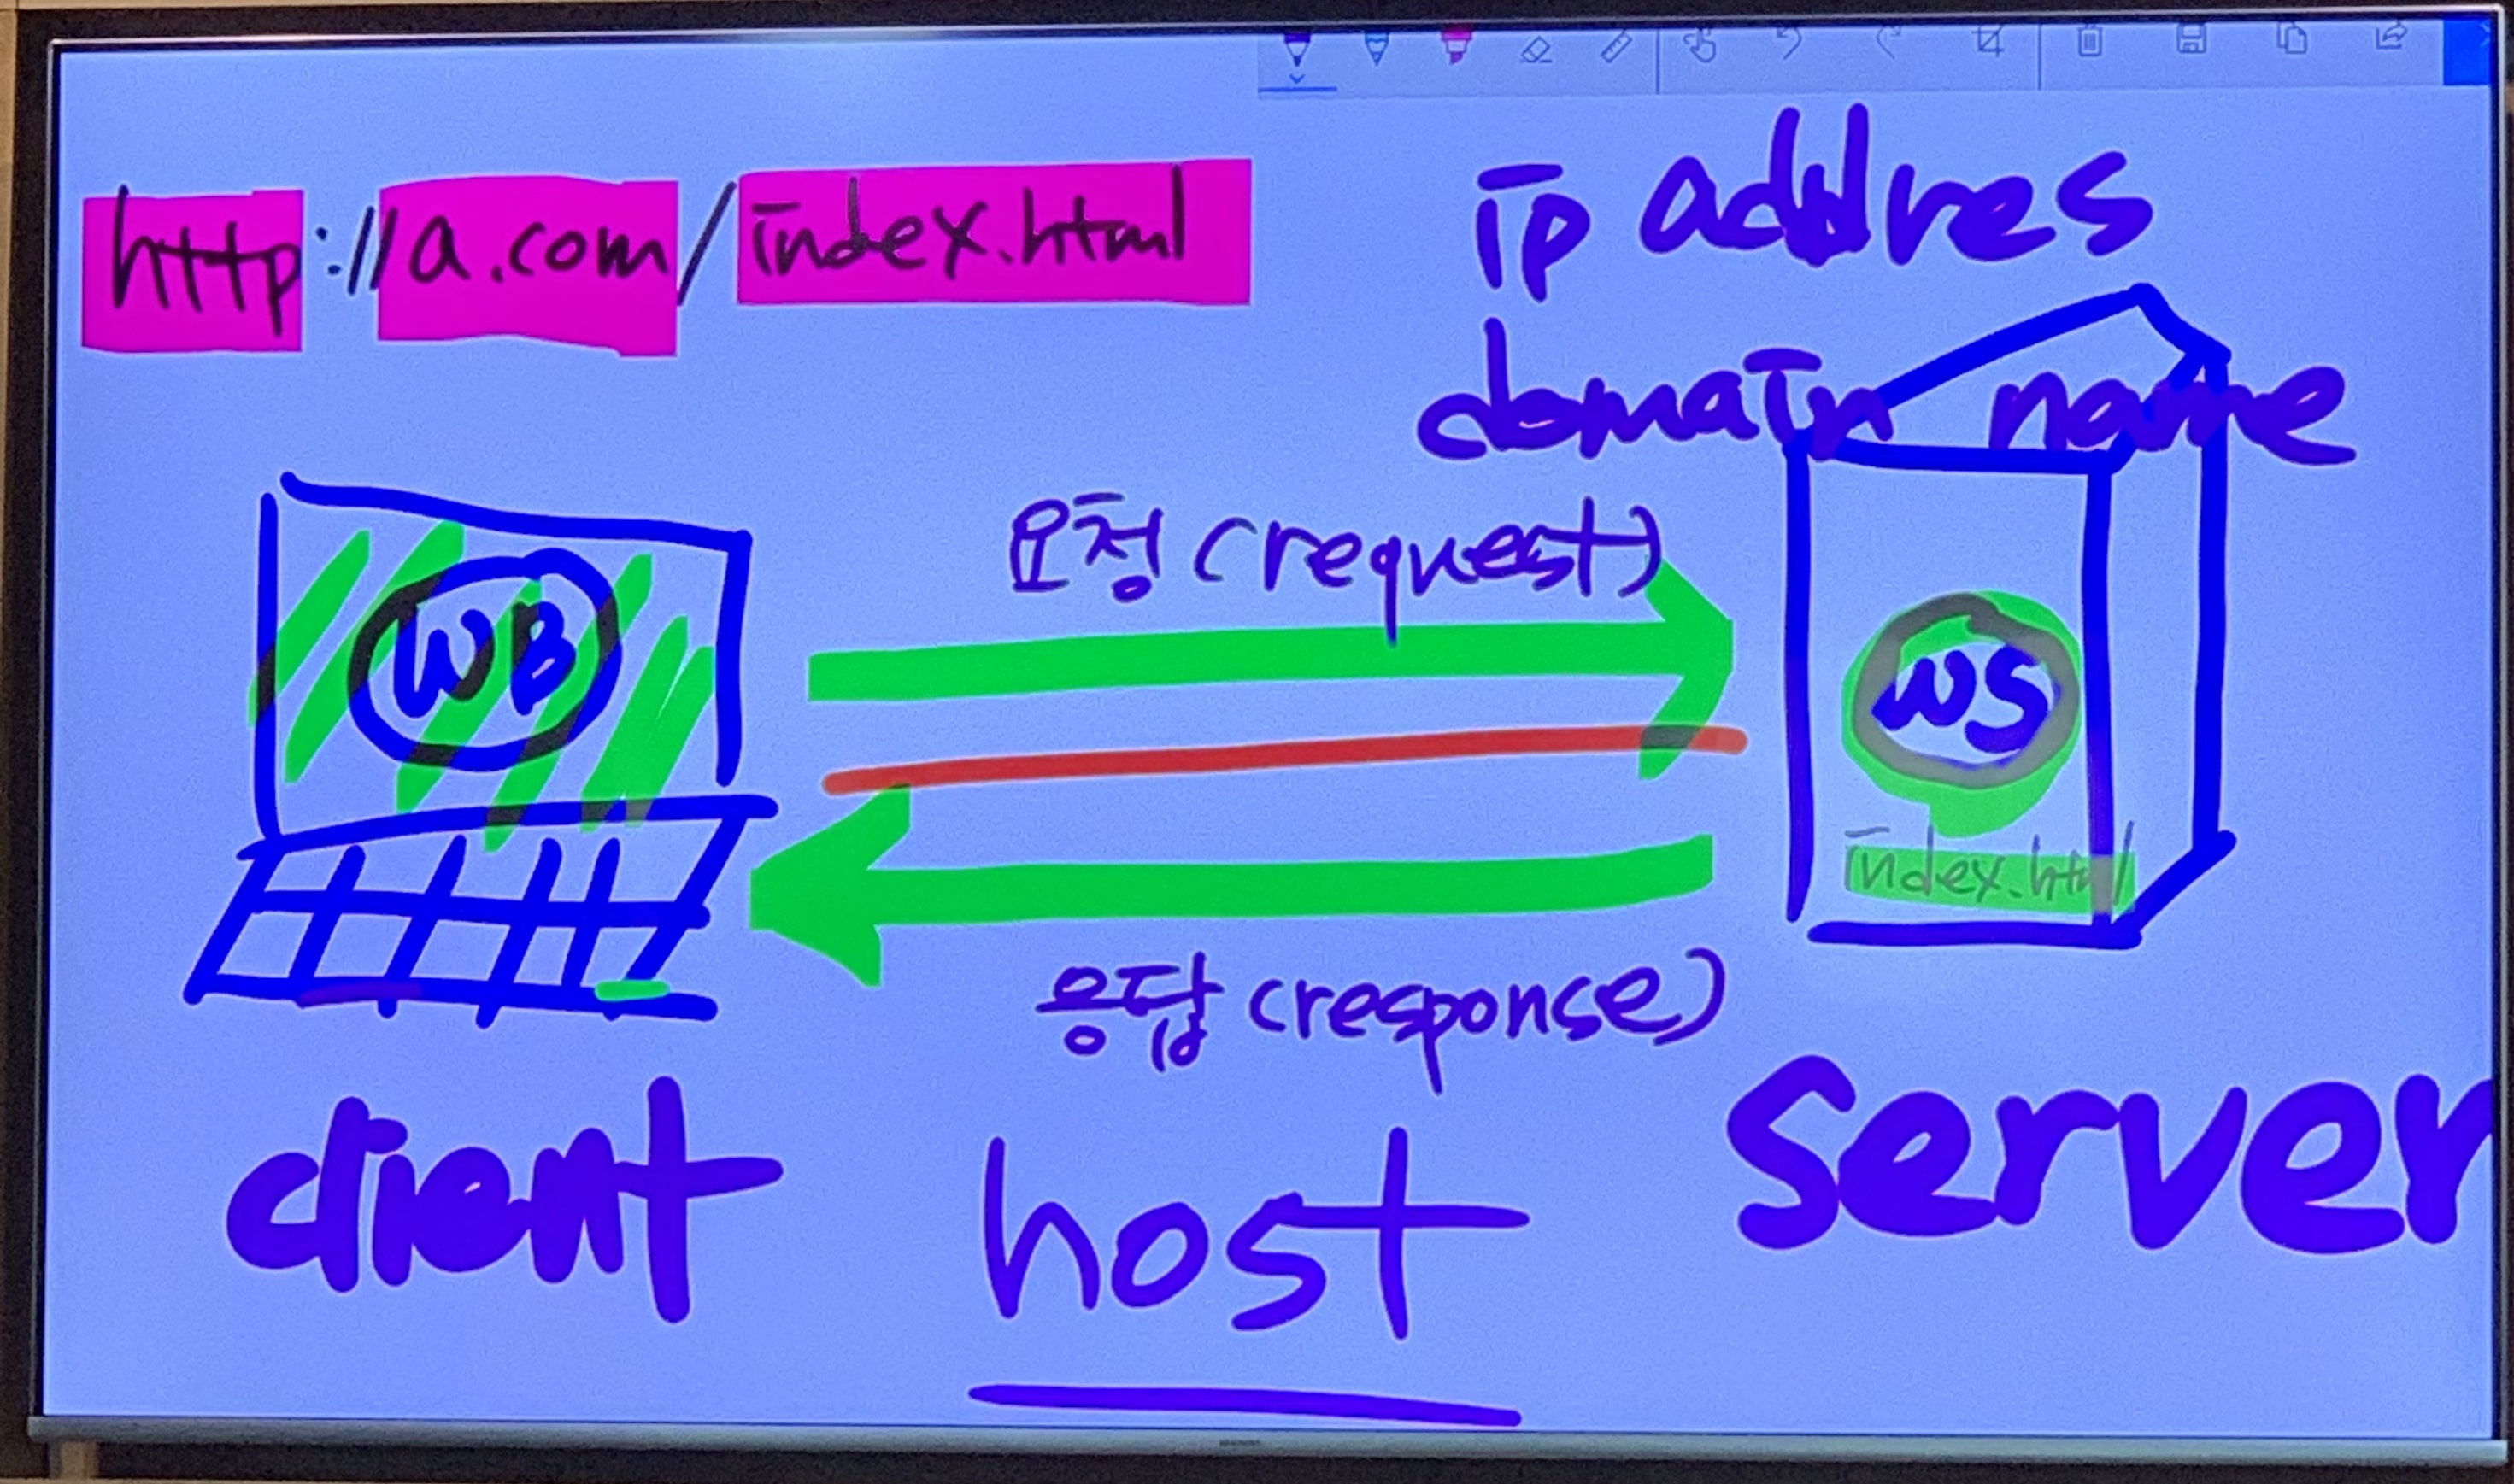 http://a.com/index.html
ip addres
domain name
요청 (request)
WB
WS
index.html
응답 (response)
client
host
server